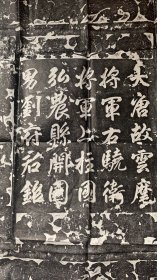 大唐故雲麾
將軍右驍衛
將軍上柱國
弘農縣開國
男劉府君銘